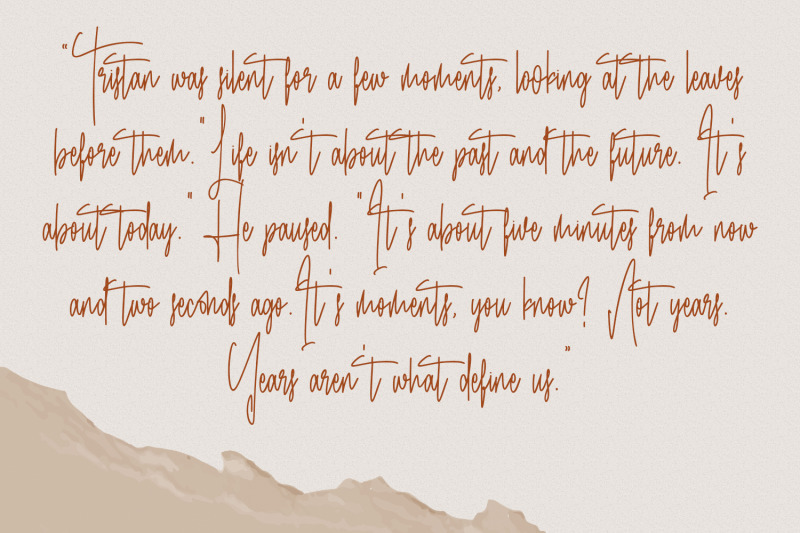 "Tristan was silent for a few moments, looking at the leaves
before them. "Life isn't about the past and the future. It's
about today." He paused. "It's about five minutes from now
and two seconds ago. It's moments, you know? Not years.
Years aren't what define us."